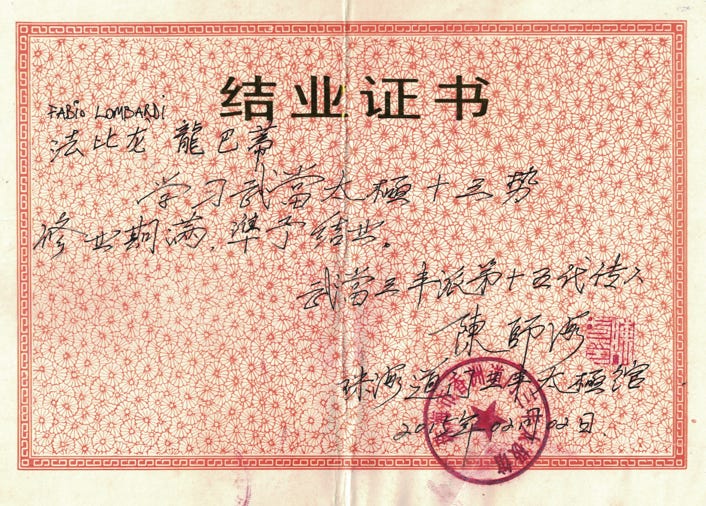 结业证书
FABIO LOMBARDI
法比龙 龍巴蒂
学习武當太極十三势
修业期满,準予结业。
武當三丰派第十五代传人
陳師海
珠海道门三丰太極馆
2015年02月02日.